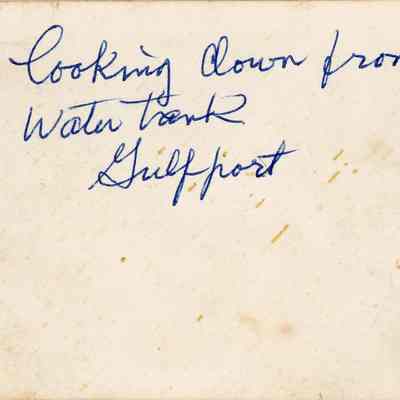 Looking down fron
Water tank
Gulfport